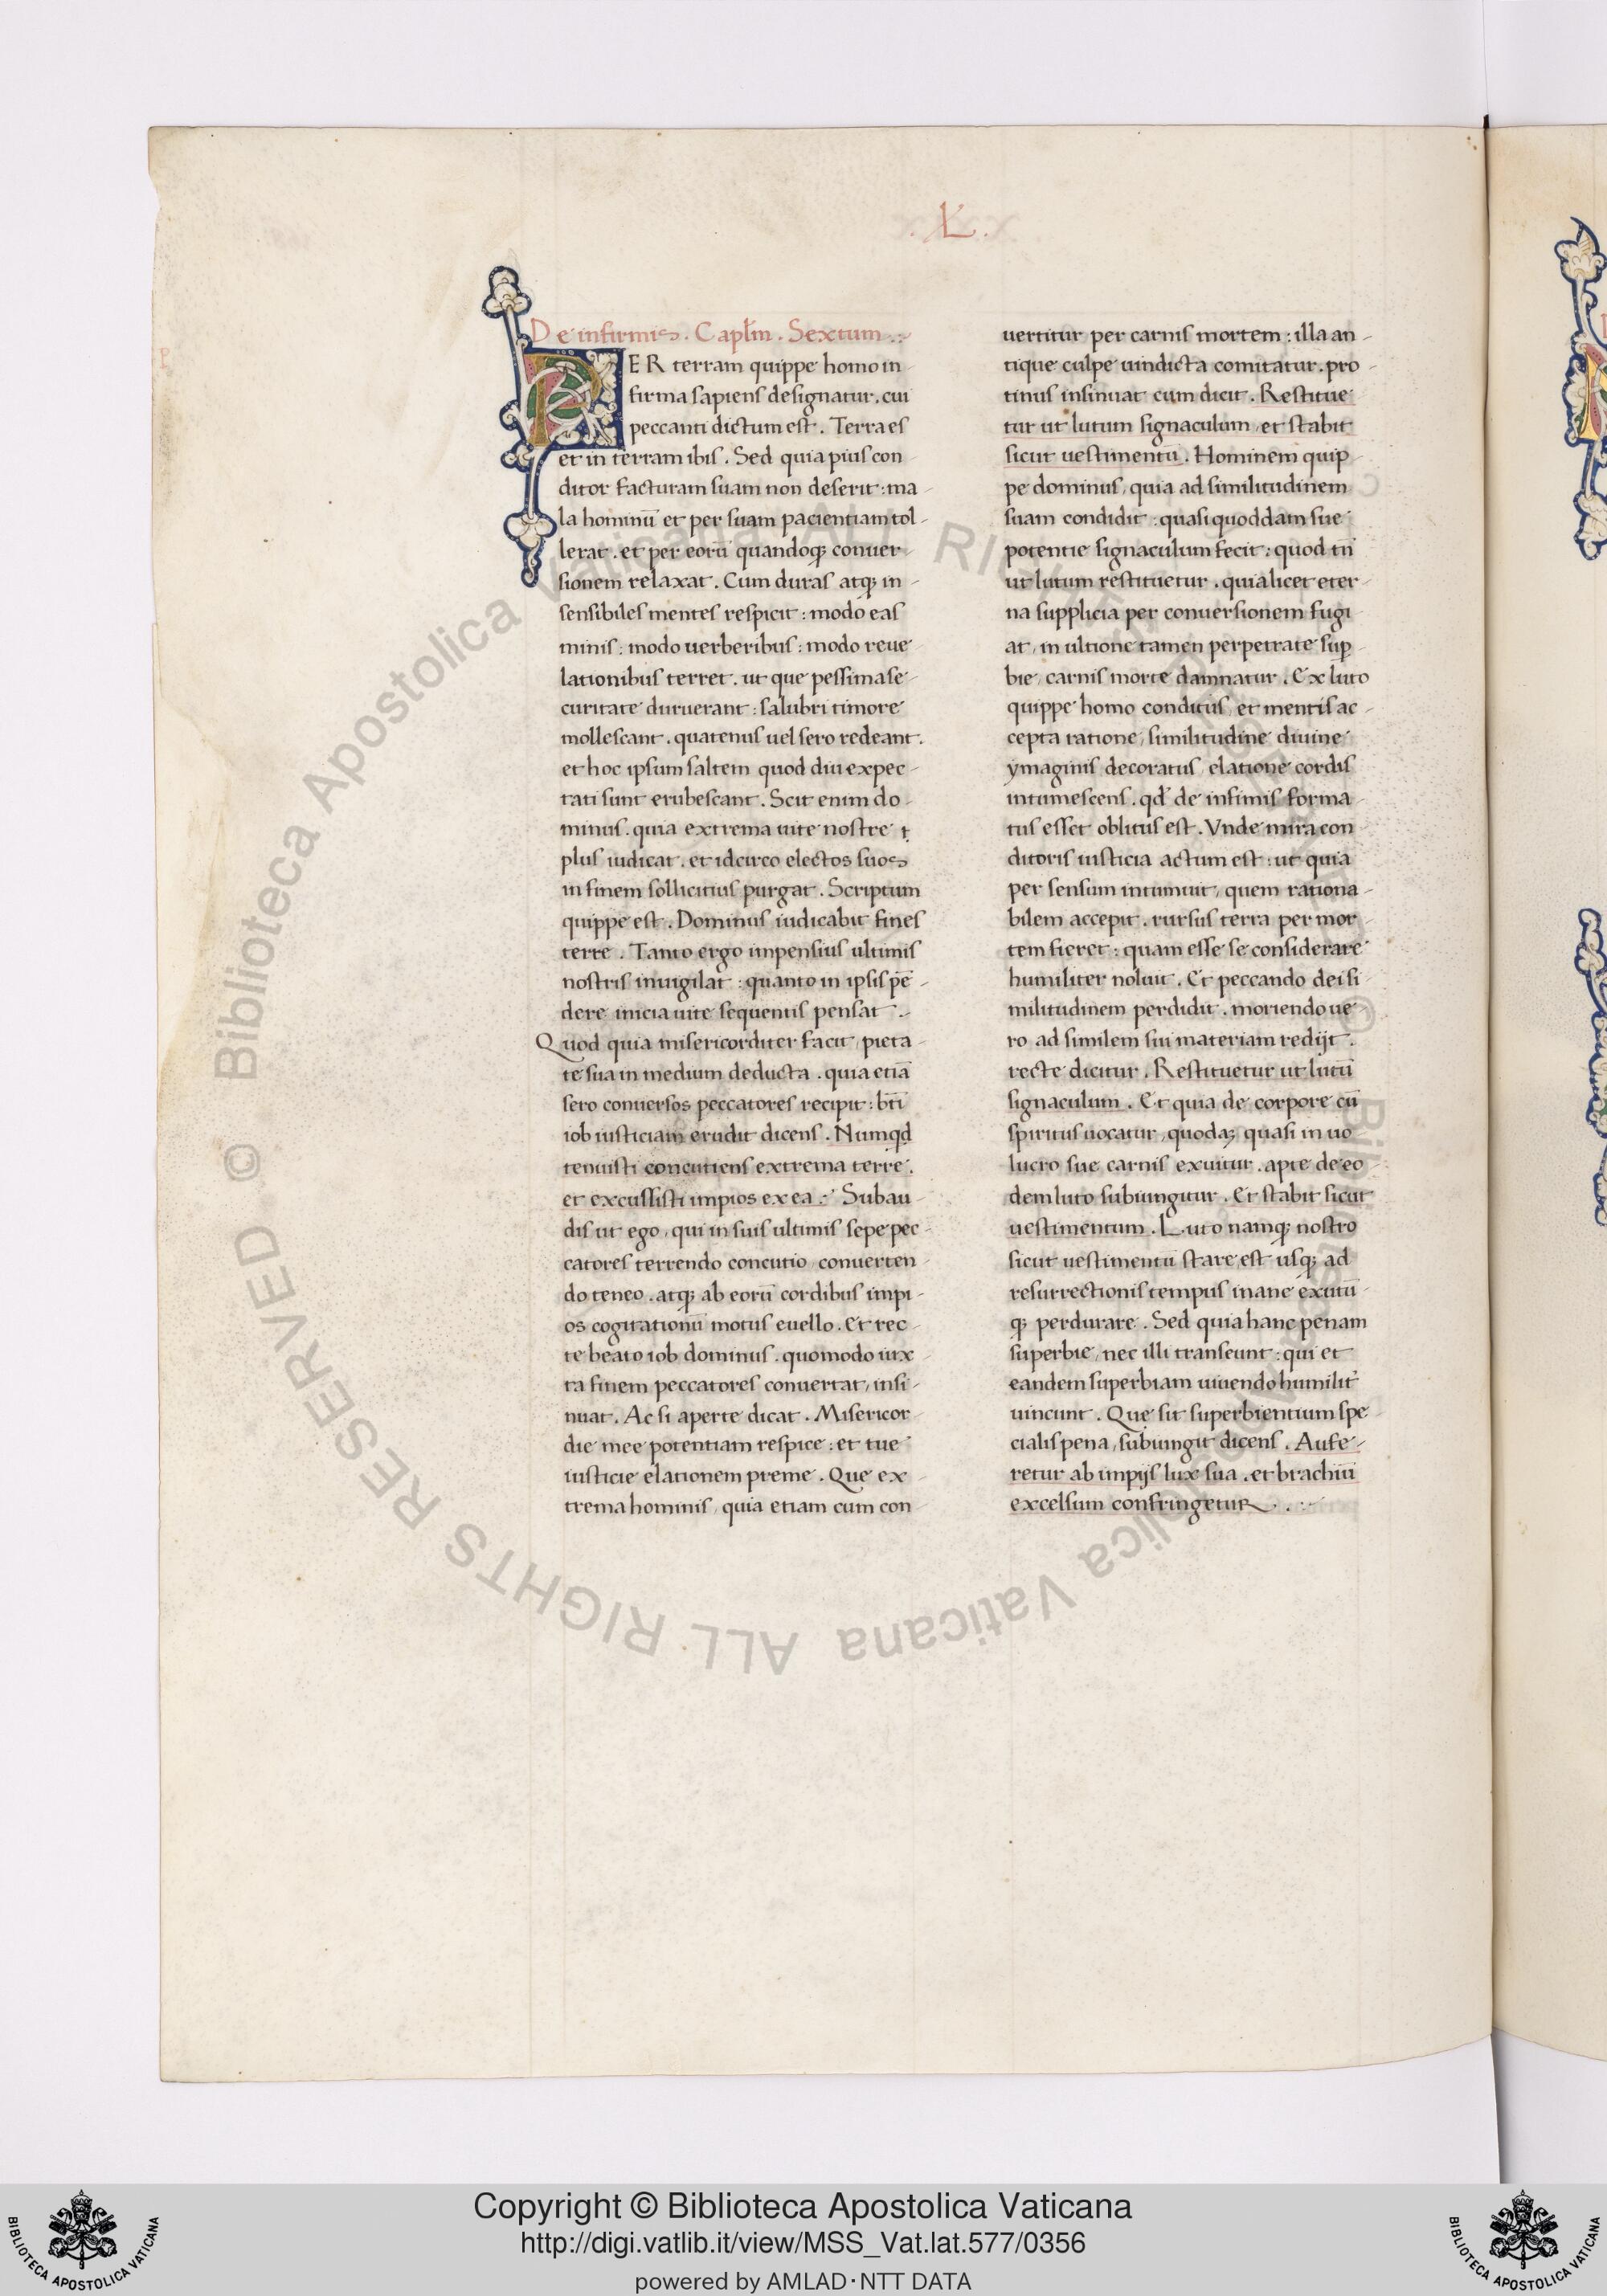 .L.
De infirmis. Caplm̄. Sextum.
PER terram quippe homo in-
firma sapiens designatur. cui
peccanti dictum est. Terra es
et in terram ibis. Sed quia pius con
ditor facturam suam non deserit: ma-
la hominū et per suam pacientiam tol-
lerat. et per eorū quandoqꝫ conuer-
sionem relaxat. Cum duras atqꝫ in-
sensibiles mentes respicit: modo eas
minis: modo uerberibus: modo reue
lationibus terret. ut que pessima se-
curitate duruerant: salubri timore
mollescant. quatenus uel sero redeant.
et hoc ipsum saltem quod diu expec-
tati sunt erubescant. Scit enim do-
minus. quia extrema uite nostre
plus iudicat. et idcirco electos suos
in finem sollicitius purgat. Scriptum
quippe est. Dominus iudicabit fines
terre. Tanto ergo impensius ultimis
nostris inuigilat: quanto in ipsis pē-
dere inicia uite sequentis pensat.
Quod quia misericorditer facit, pieta-
te sua in medium deducta. quia etiā
sero conuersos peccatores recipit: bt̄i
iob iusticiam erudit dicens. Numqd
tenuisti concutiens extrema terre.
et excussisti impios ex ea: Subau-
dis ut ego, qui in suis ultimis sepe pec-
catores terrendo concutio, conuerten-
do teneo. atqꝫ ab eorū cordibus impi-
os cogitationū motus euello. Et rec-
te beato iob dominus. quomodo iux-
ta finem peccatores conuertat, insi-
nuat. Ac si aperte dicat. Misericor-
die mee potentiam respice: et tue
iusticie elationem preme. Que ex-
trema hominis, quia etiam cum con
uertitur per carnis mortem: illa an-
tique culpe uindicta comitatur. pro-
tinus insinuat cum dicit. Restitue-
tur ut lutum signaculum, et stabit
sicut uestimentū. Hominem quip-
pe dominus, quia ad similitudinem
suam condidit: quasi quoddam sue
potentie signaculum fecit: quod tn̄
ut lutum restituetur. quia licet eter-
na supplicia per conuersionem fugi-
at, in ultione tamen perpetrate suꝑ-
bie, carnis morte damnatur. Ex luto
quippe homo conditus, et mentis ac-
cepta ratione, similitudine diuine
ymaginis decoratus, elatione cordis
intumescens. qd' de infimis forma-
tus esset oblitus est. Vnde mira con
ditoris iusticia actum est: ut quia
per sensum intumuit, quem rationa-
bilem accepit. rursus terra per mor-
tem fieret: quam esse se considerare
humiliter noluit. Et peccando dei si
militudinem perdidit. moriendo ue-
ro ad similem sui materiam redijt.
recte dicitur. Restituetur ut lutū
signaculum. Et quia de corpore cū
spiritus uocatur, quodaꝫ quasi in uo
lucro sue carnis exuitur. apte de eo-
dem luto subiungitur. Et stabit sicut
uestimentum. Luto namqꝫ nostro
sicut uestimentū stare, est usqꝫ ad
resurrectionis tempus inane exutū
qꝫ perdurare. Sed quia hanc penam
superbie, nec illi transeunt: qui et
eandem superbiam uiuendo humilit'
uincunt. Que sit superbientium spe
cialis pena, subiungit dicens. Aufe-
retur ab impijs lux sua. et brachiū
excelsum confringetur.
© Biblioteca Apostolica Vaticana ALL RIGHTS RESERVED
Copyright © Biblioteca Apostolica Vaticana
http://digi.vatlib.it/view/MSS_Vat.lat.577/0356
powered by AMLAD·NTT DATA
BIBLIOTECA APOSTOLICA VATICANA
BIBLIOTECA APOSTOLICA VATICANA